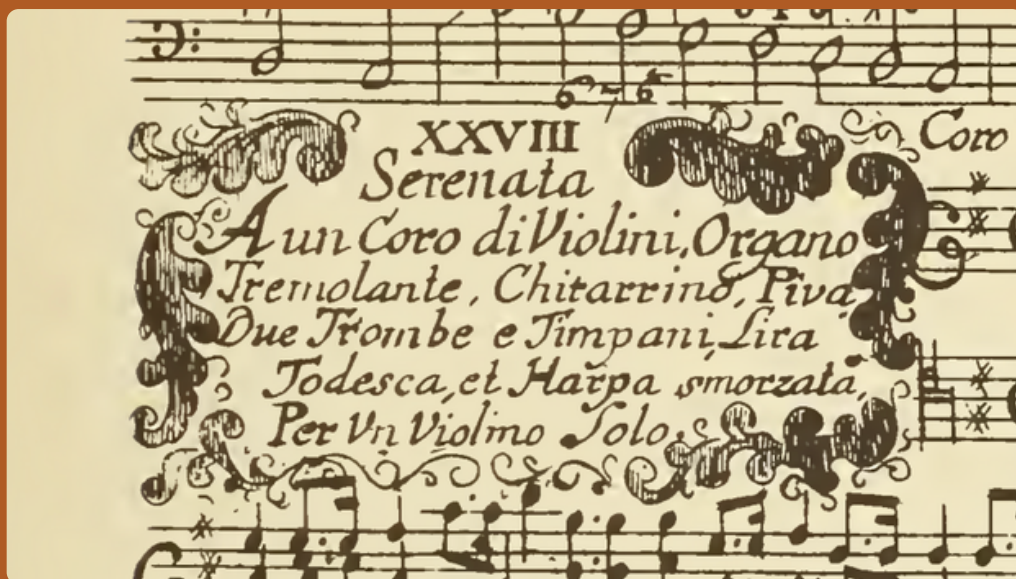 6 7 6
XXVIII
Coro
Serenata
A un Coro di Violini, Organo
Tremolante, Chitarrino, Piva,
Due Trombe e Timpani, Lira
Todesca, et Harpa smorzata,
Per Vn Violino Solo.